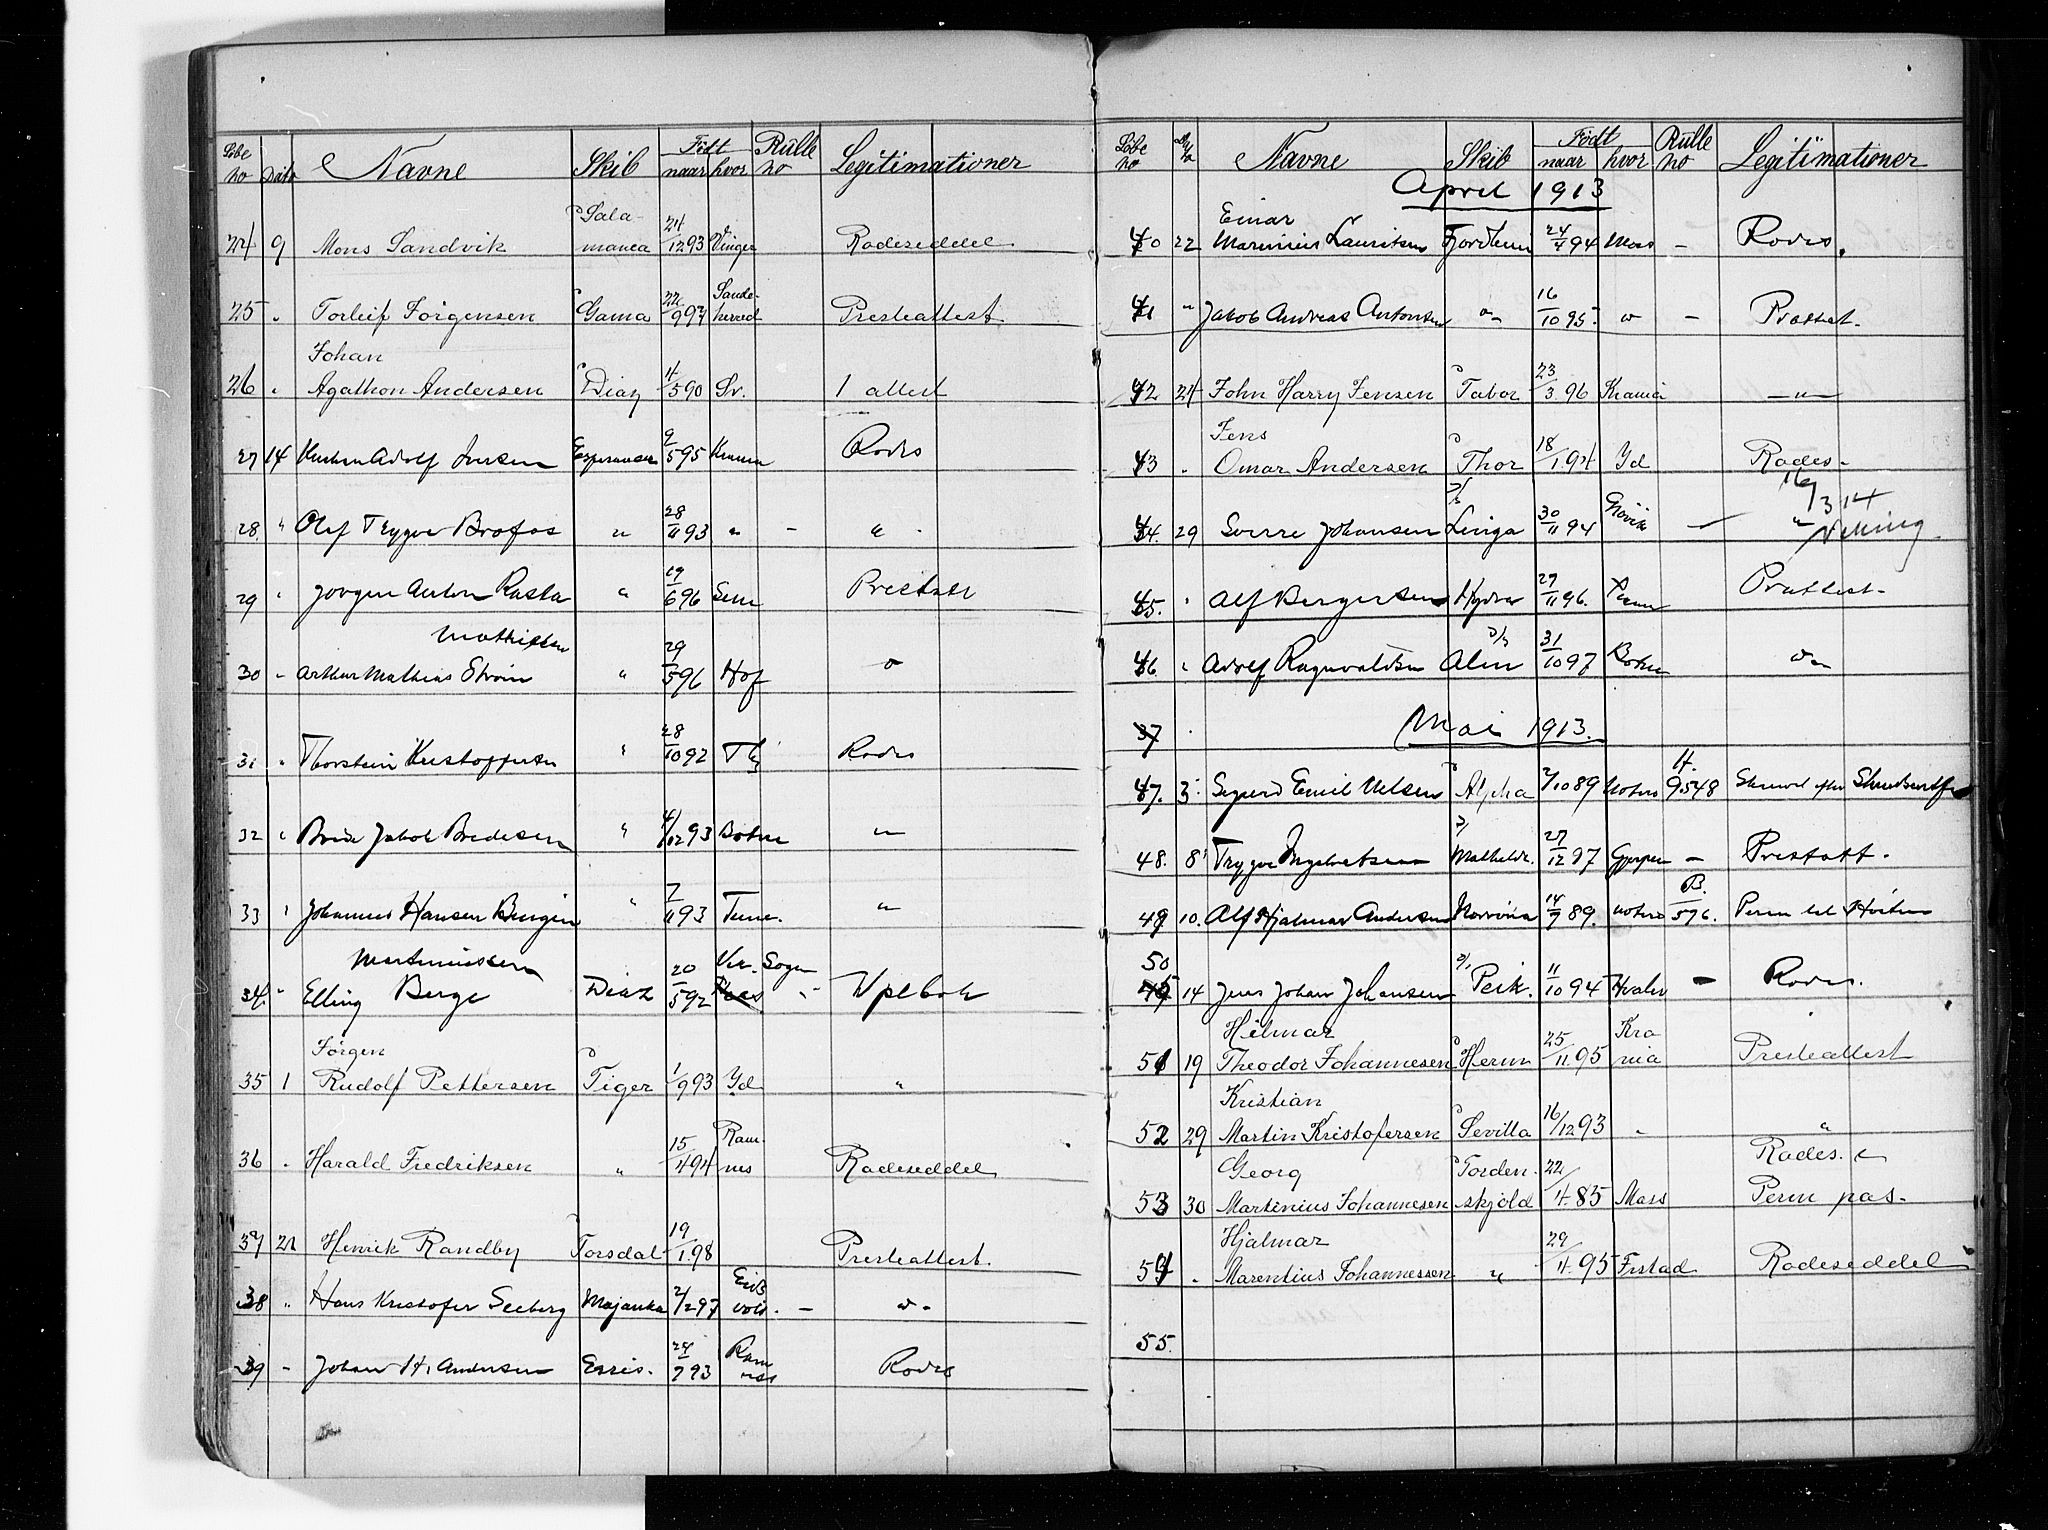 Løbe no Dato Navne Skib Født naar hvor Rulle no Legitimationer
24 9 Mons Sandvik Salamanca 24/12 93 Vinger Rodeseddel
25 " Torleif Jørgensen Gama 22/9 97 Sandeherred Presteattest
Johan
26 " Agathon Andersen Diaz 11/5 90 Sv. 1 attest
27 14 Adolf Esperanza 9/5 95 Rodes
28 " Olef Trygve Brofos " 28/11 93 " - "
29 " Jørgen Anton Rasta " 19/6 96 Sem Prestatt
Mathisen
30 " Arthur Mathias Strøm " 29/5 96 Hof "
31 " Thorstein Kristoffersen " 28/10 92 Thj Rodes
32 " Brede Jakob Bredesen " 4/12 93 Botne "
33 " Johannes Hansen Bingen " 7/11 93 Tune. "
Martiniussen
34 " Elling Berge Diaz 20/5 92 Sogn " Uplbok
Jørgen
35 1 Rudolf Pettersen Tiger 1/9 93 Id "
36 " Harald Fredriksen " 15/4 94 Ramnes Rodeseddel
37 21 Henrik Randby Torsdal 19/1 98 Presteattest.
38 " Hans Kristofer Seeberg Majanka 2/12 97 Eidsvold - "
39 " Johan H. Andersen Essis. 24/7 93 Ramnes Rodes
Løbe no Dato Navne Skib Født naar hvor Rulle no Legitimationer
April 1913
Einar
40 22 Marinius Lauritsen Fjordheim 24/4 94 Moss - Rodes.
41 " Jakob Andreas Antonsen " 16/10 95 " - Prattest.
42 24 John Harry Jensen Tabor 23/3 96 Krania "
Jens
43 " Omar Andersen Thor 18/1 94 Id Rodes.
16/3 14
44. 29 Sverre Johansen Linga 30/11 94 Gjøvik - "
45. " Alf Bergersen Hydra 27/11 96. Prattest.
46 " Adolf Ragnvaldsen Alin 31/10 97 Botne "
37 Mai 1913.
H.
47. 3. Sigurd Emil Nilsen Alpha 7/10 89 Notterø 9548
48. 8 Trygve Mathilde. 27/12 97 Gjerpen - Prestatt.
B.
49 10. Alf Hjalmar Andersen Norvina 14/7 89. Notterø 596. Perm til Horten
50
14 Jens Johan Johansen Peik. 11/10 94 Hvaler - Rodes.
Hilmar
51 19 Theodor Johannesen Herm 25/11 95 Krania Presteattest
Kristian
52 29 Martin Kristofersen Sevilla 16/12 93 " "
Georg Rodes.
53 30 Martinius Johannesen Tordenskjold 22/4 85 Moss Perm pas.
Hjalmar
54 " Marentius Johannessen " 29/4 95 Frstad Rodeseddel
55.